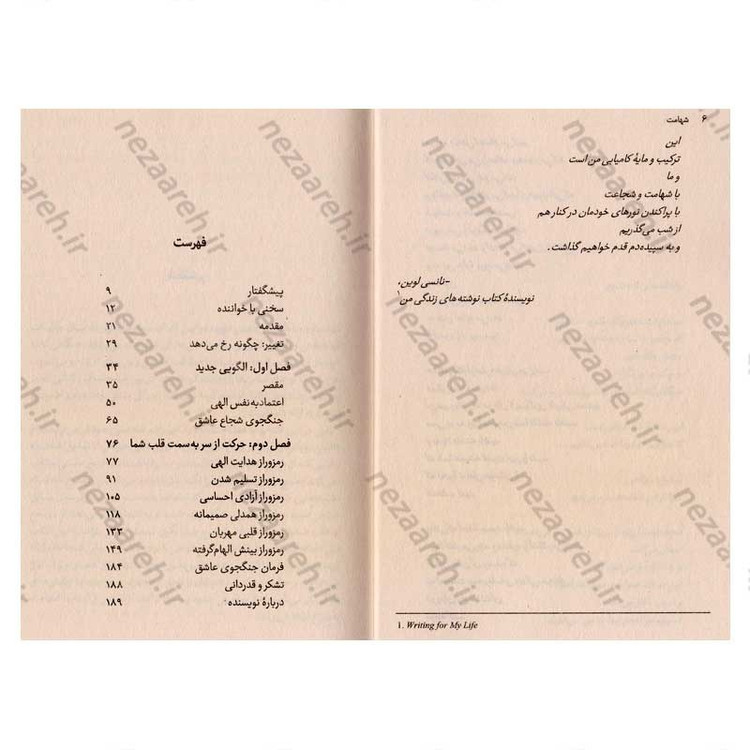 ۶ شهامت
این
ترکیب و مایهٔ کامیابی من است
و ما
با شهامت و شجاعت
با پراکندن نورهای خودمان در کنار هم
از شب می‌گذریم
و به سپیده‌دم قدم خواهیم گذاشت.
-نانسی لوین،
نویسندهٔ کتاب نوشته‌های زندگی من۱
1. Writing for My Life
فهرست
پیشگفتار ۹
سخنی با خواننده ۱۲
مقدمه ۲۱
تغییر: چگونه رخ می‌دهد ۲۹
فصل اول: الگویی جدید ۳۴
مقصر ۳۵
اعتمادبه‌نفس الهی ۵۰
جنگجوی شجاع عاشق ۶۵
فصل دوم: حرکت از سر به سمت قلب شما ۷۶
رمزوراز هدایت الهی ۷۷
رمزوراز تسلیم شدن ۹۱
رمزوراز آزادی احساسی ۱۰۵
رمزوراز همدلی صمیمانه ۱۱۸
رمزوراز قلبی مهربان ۱۳۳
رمزوراز بینش الهام‌گرفته ۱۴۹
فرمان جنگجوی عاشق ۱۸۴
تشکر و قدردانی ۱۸۸
دربارهٔ نویسنده ۱۸۹
nezaareh.ir
nezaareh.ir
nezaareh.ir
nezaareh.ir
nezaareh.ir
nezaareh.ir
nezaareh.ir
nezaareh.ir
nezaareh.ir
nezaareh.ir
nezaareh.ir
nezaareh.ir